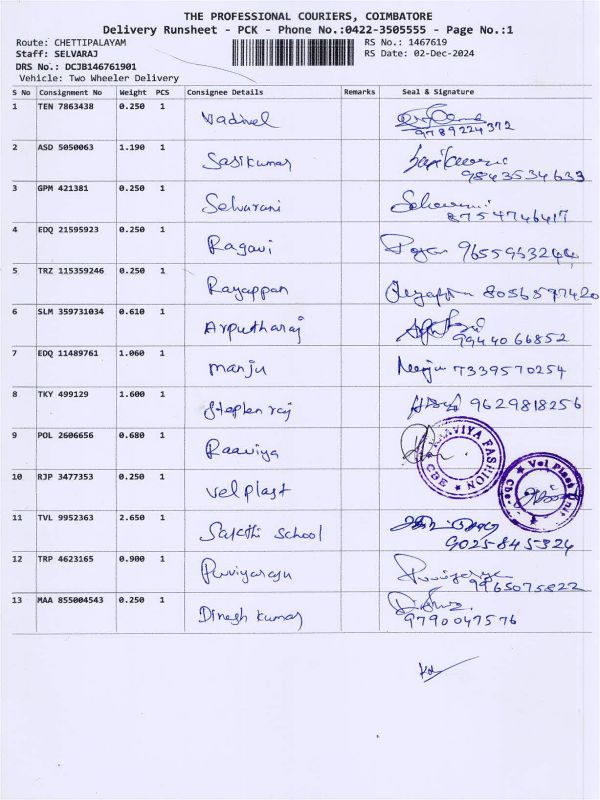 THE PROFESSIONAL COURIERS, COIMBATORE
Delivery Runsheet - PCK - Phone No.:0422-3505555 - Page No.:1
Route: CHETTIPALAYAM
RS No.: 1467619
Staff: SELVARAJ
RS Date: 02-Dec-2024
DRS No.: DCJB146761901
Vehicle: Two Wheeler Delivery
S No Consignment No Weight PCS Consignee Details Remarks Seal & Signature
1 TEN 7863438 0.250 1 Vadivel
9789224372
2 ASD 5050063 1.190 1 Sasikumar Sasikumar
9843534633
3 GPM 421381 0.250 1 Selvarani
8754746417
4 EDQ 21595923 0.250 1 Ragavi 9655953244
5 TRZ 115359246 0.250 1 Rayappan 8056597420
6 SLM 359731034 0.610 1 Arputharaj
9944066852
7 EDQ 11489761 1.060 1 manju Manju 7339570254
8 TKY 499129 1.600 1 Stephen raj 9629818256
9 POL 2606656 0.680 1 Raaviya
RAAVIYA FASHION
CBE
10 RJP 3477353 0.250 1 velplast
Vel Plast
Cbe
11 TVL 9952363 2.650 1 Sakthi School
9025845324
12 TRP 4623165 0.900 1 Puviyaraju
9965075822
13 MAA 855004543 0.250 1 Dinesh kumar
9790047576